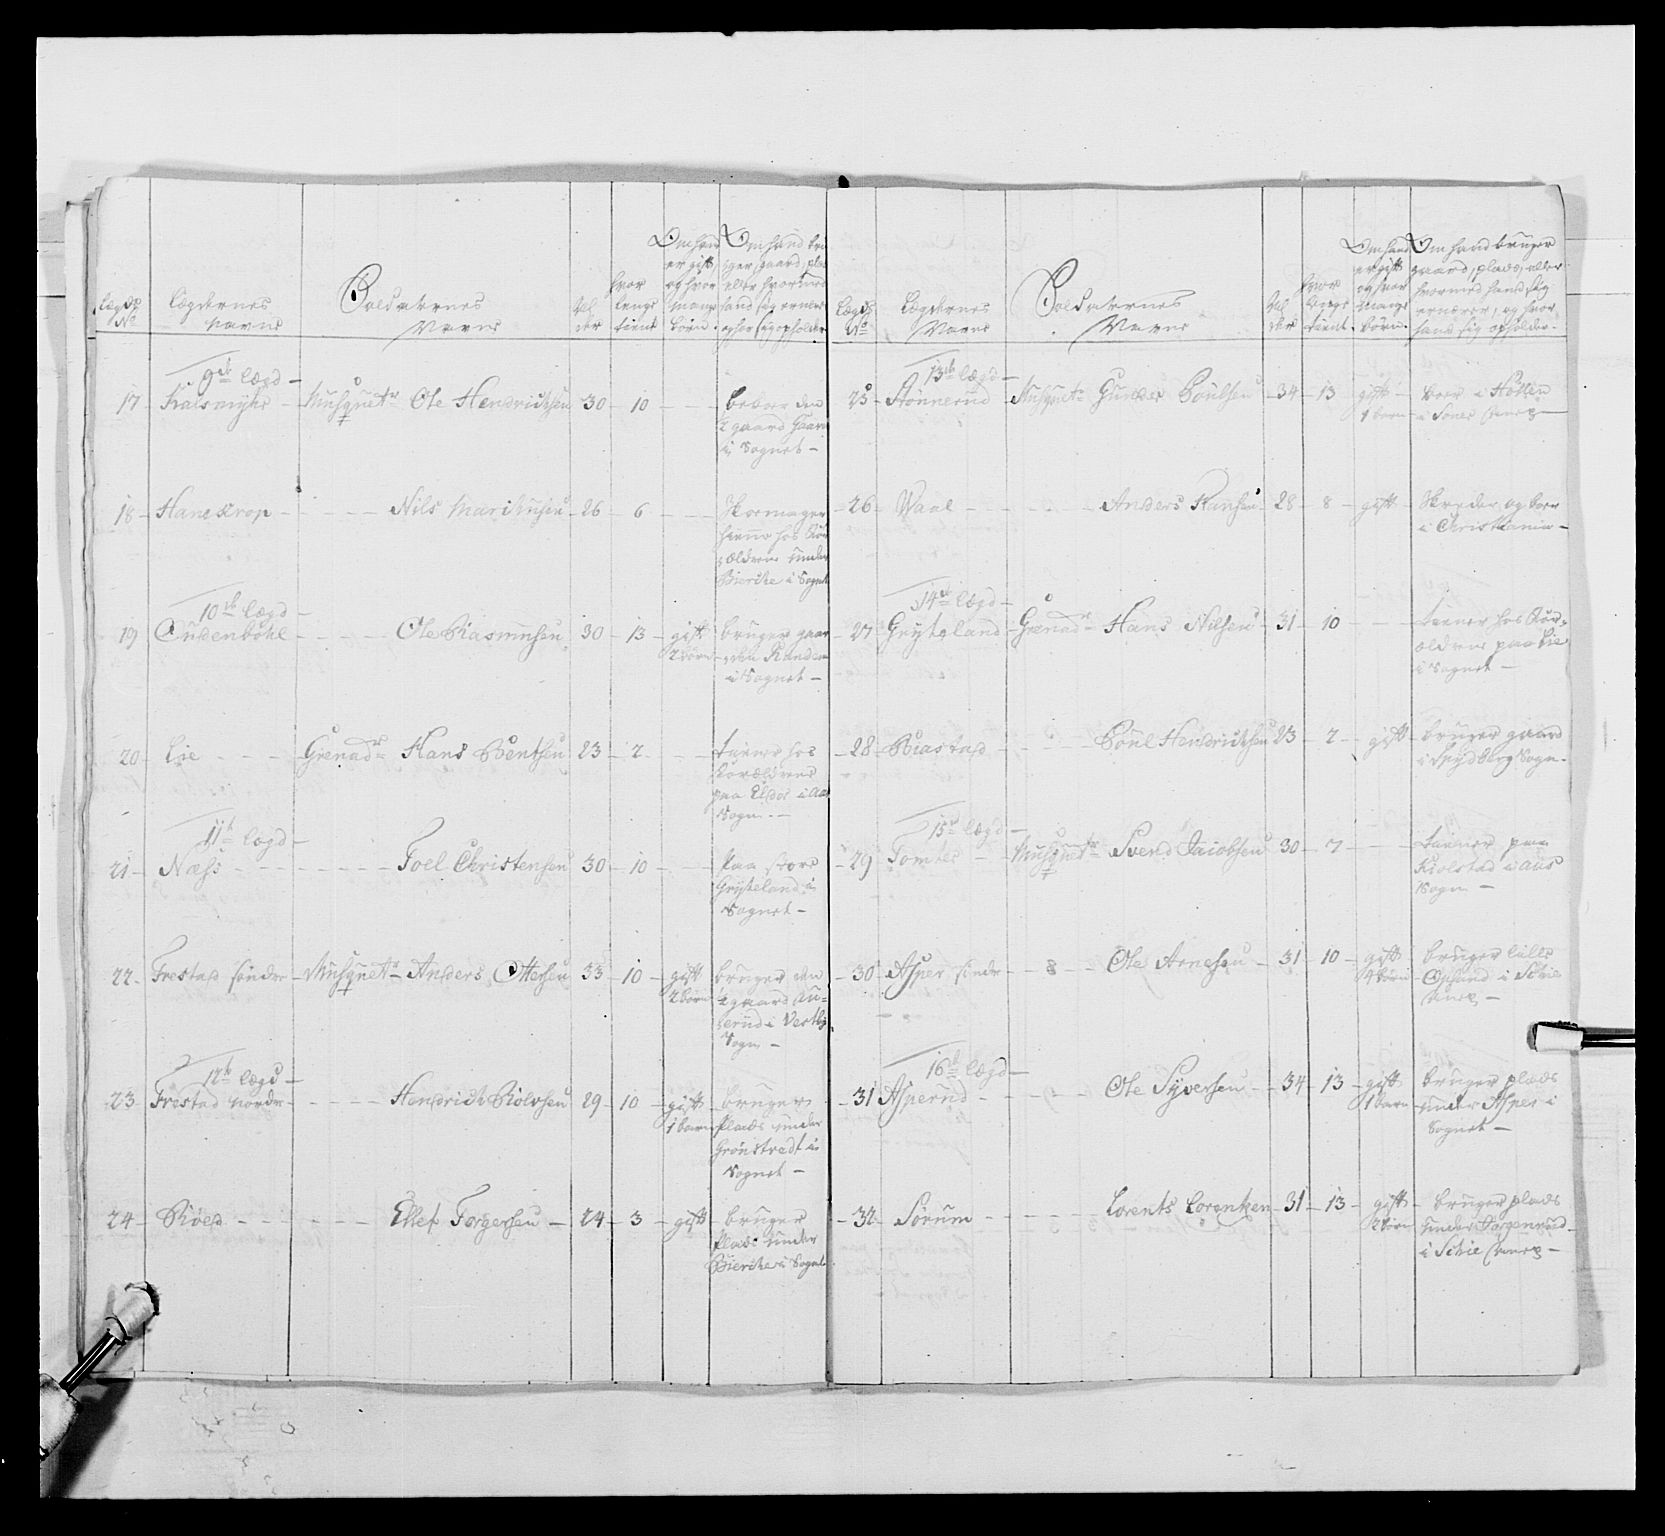 Lægds No
Lægdernes Navne
Soldaternes Navne
Alder
hvor lenge tient
Om hand er gift, og hvor mange børn.
Om hand bruger gaard, plads eller hvormed hand sig ernærer og hvor sig opholder
9de Lægd
17 Kalsmyhr Musquetr Ole Hendrichsen 30 10 beboer den gaard i Sognet
18 Hanekrop Nils 26 6 Skomager hienne hos under Bierche i Sognet
10de Lægd
19 Ole Rasmusen 30 13 gift 2 børn bruger gaarden i Sognet
20 Lie Grenadr Hans Bentsen 23 2 tiener hos forældrene paa i Aas Sogn
11te Lægd
21 Næss Joel Christensen 30 10 paa store Gryteland i Sognet
22 Frestad søndre Musquetr Anders Ottersen 33 10 gift 2 børn bruger den gaard i Vestby Sogn
12te Lægd
23 Frestad nordre Hendrich Rolvsen 29 10 gift 1 barn bruger Plads under Grønstvedt i Sognet
24 Røed Ellef Torgersen 24 3 gift bruger Plads under Bierche i Sognet
Lægds No
Lægdernes Navne
Soldaternes Navne
Alder
hvor lenge tient.
Om hand er gift og hvor mange børn.
Om hand bruger gaard, plads, eller hvormed hand sig ernærer, og hvor hand sig opholder.
13de Lægd
25 Stønnerud Musquetr Gunder Poulsen 34 13 gift 1 barn boer i Høllen i Soner Anex
26 Waal Anders Hansen 28 8 gift Skreder og boer i Christiania
14de Lægd
27 Gryteland Grenadr Hans Nilsen 31 10 tiener hos Forældrene paa Lie i Sognet
28 Riastad Poul Hendrichsen 23 2 gift bruger gaard i Spydberg Sogn
15de Lægd
29 Tomter Musquetr Svend Jacobsen 30 7 tiener paa Kiolstad i Aas Sogn
30 Asper søndr Ole Arnesen 31 10 gift 4 børn bruger lille i Schie Anex
16de Lægd
31 Asperud Ole Syversen 34 13 gift 1 barn bruger plads under Asper i Sognet
32 Sørum Lorents Lorentzen 31 13 gift 2 børn bruger plads under i Schie Anex